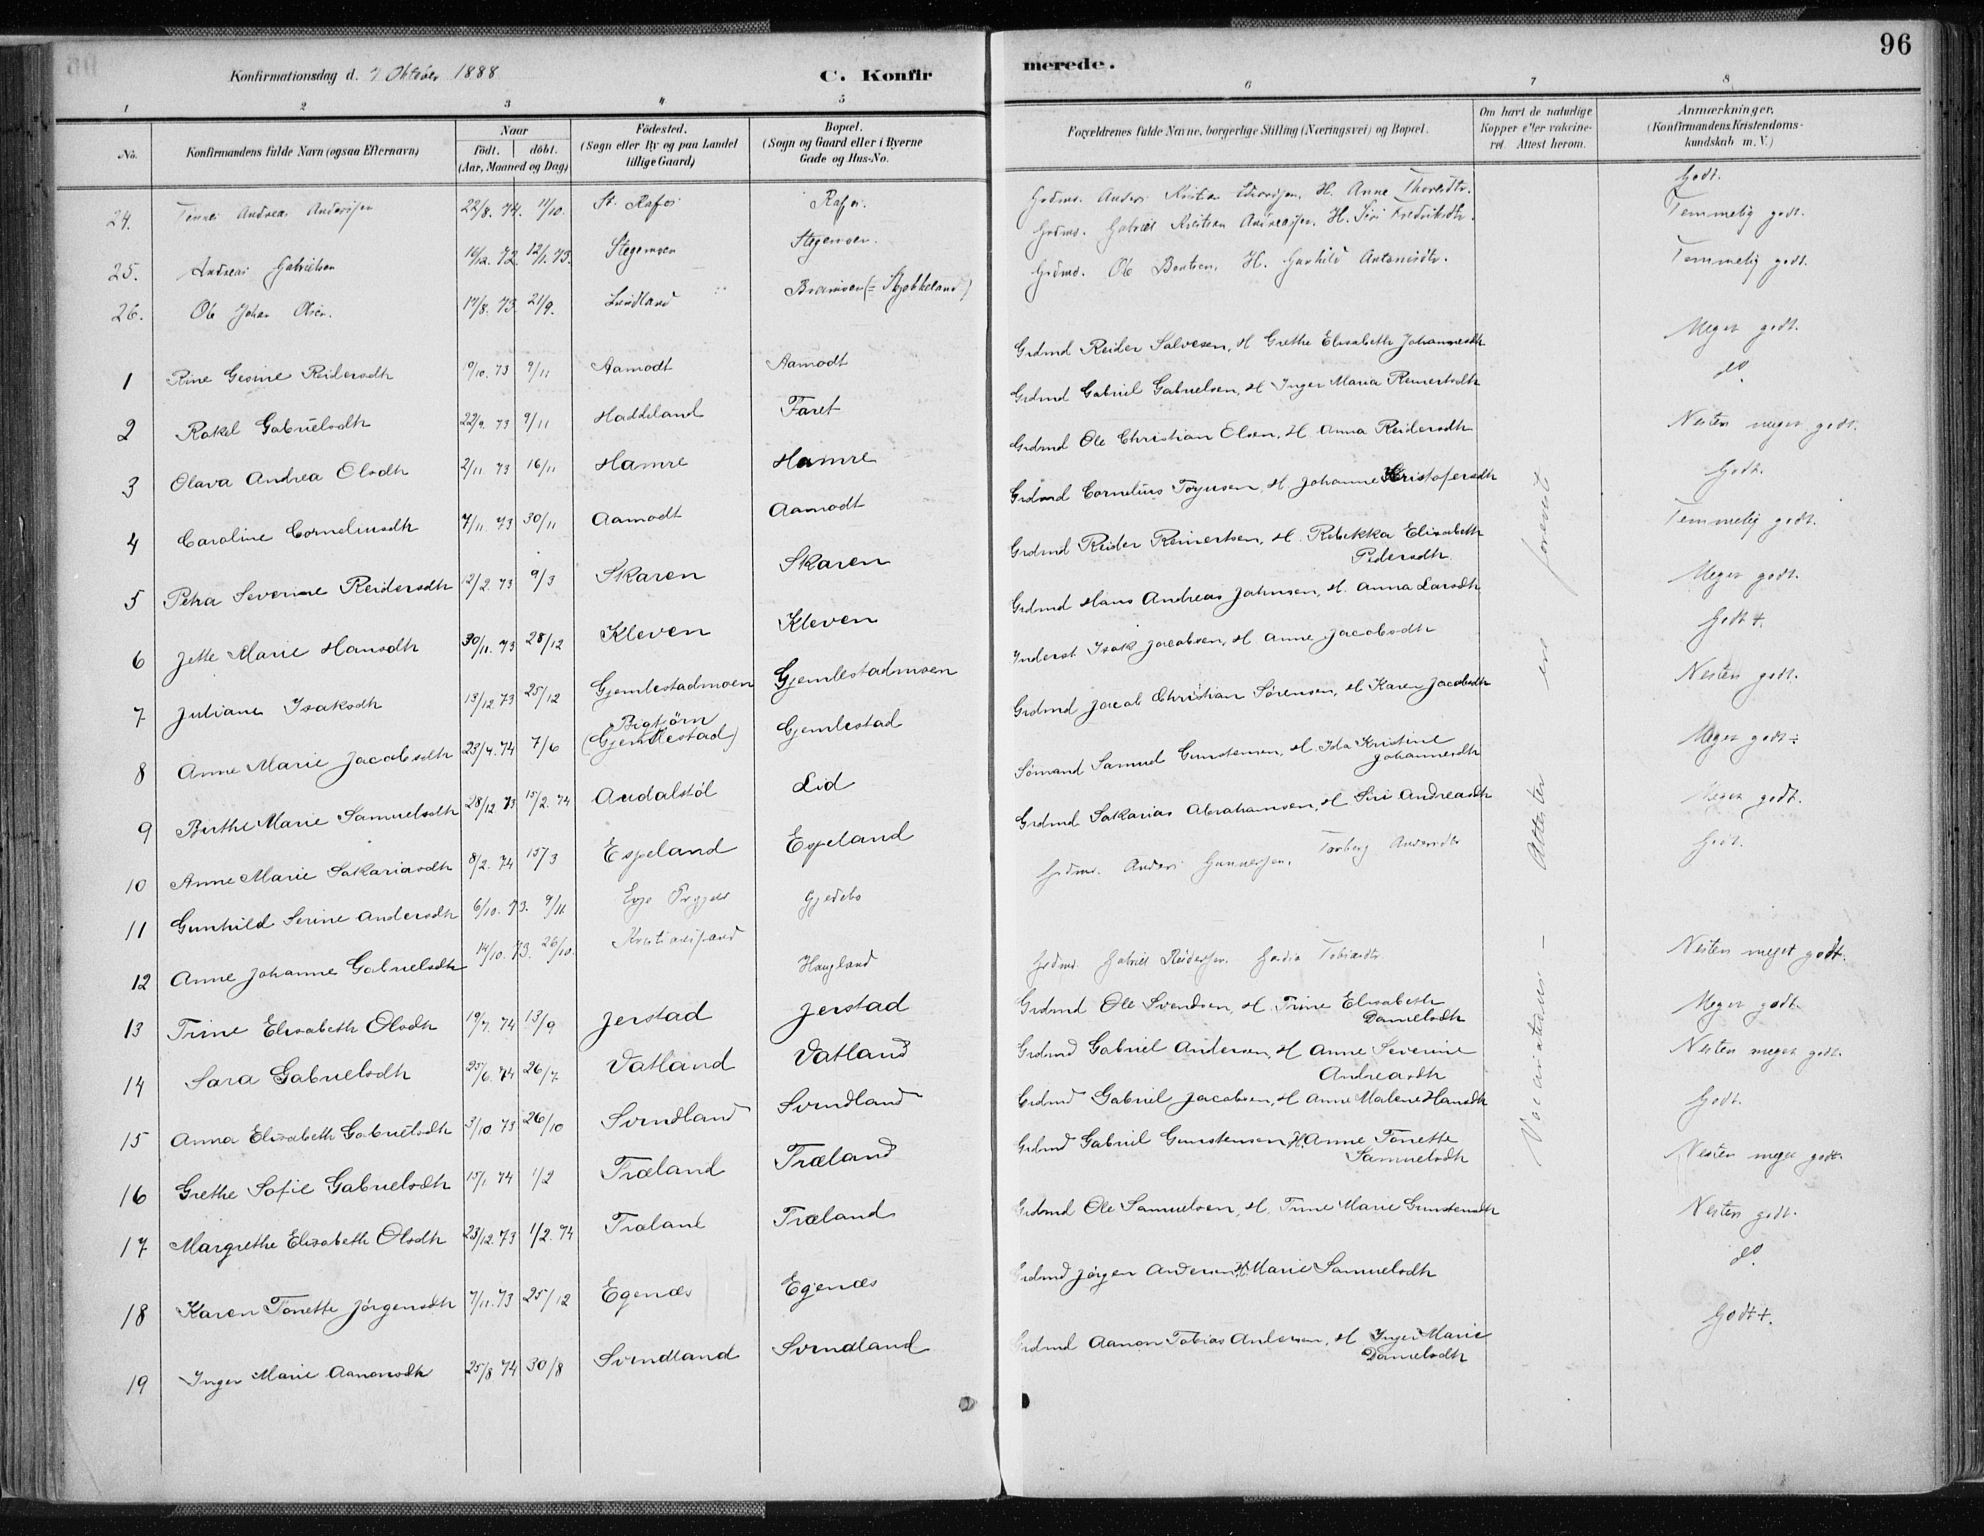 96
Konfirmationsdag d. 7 Oktober 1888
C. Konfirmerede.
1 2 3 4 5 6 7 8
No. Konfirmandens fulde Navn (ogsaa Efternavn) Naar født. døbt. (Aar, Maaned og Dag) Fødested. (Sogn eller By og paa Landet tillige Gaard) Bopæl. (Sogn og Gaard eller i Byerne Gade og Hus-No. Forældrenes fulde Navne, borgerlige Stilling (Næringsvei) og Bopæl. Om havt de naturlige Kopper eller vakcineret. Attest herom. Anmærkninger. (Konfirmandens Kristendomskundskab m. V.)
24. Andreas Andersen 22/8. 74. 11/10. St. Rafos Rafos. Grdmd. Anders Kristian H. Anne Godt.
25. Andreas Gabrielsen 16/12. 72. 12/1. 73. Stegemoen Stegemoen. Grdmd. Gabriel Kristian Andreassen. H. Siri Fredriksdtr. Temmelig godt.
26. Ole Johan Olsen. 17/8. 73. 21/9. Svindland Grdmd. Ole Bentsen. H. Gunhild Antonisdtr. Temmelig godt.
1 Rine Gesine Reidersdtr 9/10. 73 9/11 Aamodt Aamodt Grdmd Reider Salvesen, H Grethe Elisabeth Johannesdtr Meget godt.
2 Rakel Gabrielsdtr 22/9. 73 9/11 Haddeland Faret Grdmd Gabriel Gabrielsen, H Inger Maria Reinertsdtr do.
3 Olava Andrea Olsdtr 2/11. 73 16/11 Hamre Hamre Grdmd Ole Christian Olsen, H Anna Reidersdtr Nesten meget godt.
4 Caroline Corneliusdtr 7/11. 73 30/11 Aamodt Aamodt Grdmd Cornelius Torjusen, H Johanne Kristofersdtr Godt.
5 Petra Severine Reidersdtr 12/2. 73 9/3 Skaren Skaren Grdmd Reider Reinertsen, H. Rebekka Elisabeth Pedersdtr Temmelig godt.
6 Jette Marie Hansdtr 30/11. 73 28/12 Kleven Kleven Grdmd Hans Andreas Jahnsen, H. Anna Larsdtr Meget godt.
7 Juliane Isaksdtr 13/12 73 25/12 Gjemlestadmoen Gjemlestadmoen Inderst Isak Jacobsen, H Anne Jacobsdtr Godt +.
8 Anne Marie Jacobsdtr 23/4. 74 7/6 Bigtjørn (Gjemlestad) Gjemlestad Grdmd Jacob Christian Sørensen, H Karen Jacobsdtr Nesten godt.
9 Birthe Marie Samuelsdtr 28/12 73 15/2. 74 Audalstøl Lid Sømand Samuel Gunstensen, H Ida Kristine Johannesdtr Meget godt ÷
10 Anne Marie Sakariasdtr 8/2. 74 15/3 Espeland Espeland Grdmd Sakarias Abrahamsen, H Siri Andreasdtr Meget godt.
11 Gunhild Serine Andersdtr 6/10. 73. 9/11 Gjedebo Grdmd. Anders Gunnersen. Torborg Andersdtr Godt.
12 Anne Johanne Gabrielsdtr 14/10. 73. 26/10. Kristiansand Haugland Grdmd Gabriel Reidersen. Tobiasdtr. Nesten meget godt.
13 Trine Elisabeth Olsdtr 19/7. 74 13/9 Jerstad Jerstad Grdmd Ole Svendsen, H. Trine Elisabeth Danielsdtr Meget godt.
14 Sara Gabrielsdtr 25/6. 74 26/7 Vatland Vatland Grdmd Gabriel Andersen, H Anne Severine Andreasdtr Nesten meget godt.
15 Anna Elisabeth Gabrielsdtr 3/10 73 26/10 Svindland Svindland Grdmd Gabriel Jacobsen, H Anne Malene Hansdtr Godt.
16 Grethe Sofie Gabrielsdtr 15/1. 74 1/2 Træland Træland Grdmd Gabriel Gunstensen, H. Anne Tonette Samuelsdtr Nesten meget godt.
17 Margrethe Elisabeth Olsdtr 23/12. 73 1/2. 74 Træland Træland Grdmd Ole Samuelsen, H. Trine Marie Gunstensdtr Nesten godt.
18 Karen Tonette Jørgensdtr 7/11. 73 25/12 Egenæs Egenæs Grdmd Jørgen Andersen, H. Marie Samuelsdtr do.
19 Inger Marie Aanonsdtr 25/8 74 30/8 Svindland Svindland Grdmd Aanon Tobias Andersen, H Inger Marie Danielsdtr Godt +.